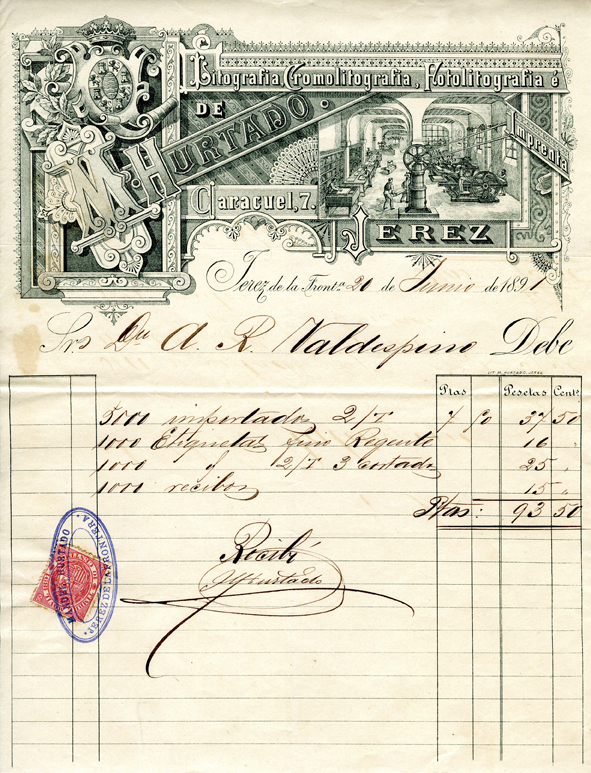 Litografia, Cromolitografia, Fotolitografia é
Imprenta
DE
M. HURTADO.
Caracuel, 7.
JEREZ
Jerez de la Front.ª 20 de Junio de 1891
Srs Dn A. R. Valdespino Debe
LIT. M. HURTADO, JEREZ
Ptas Pesetas Cents
5000 importado 2/T 7 50 37 50
1000 Etiquetas fino Regente 16 "
1000 2/T 3 cortado 25 "
1000 recibos 15 "
Ptas: 93 50
Recibí
MHurtado
MANUEL HURTADO
JEREZ DE LA FRONTERA